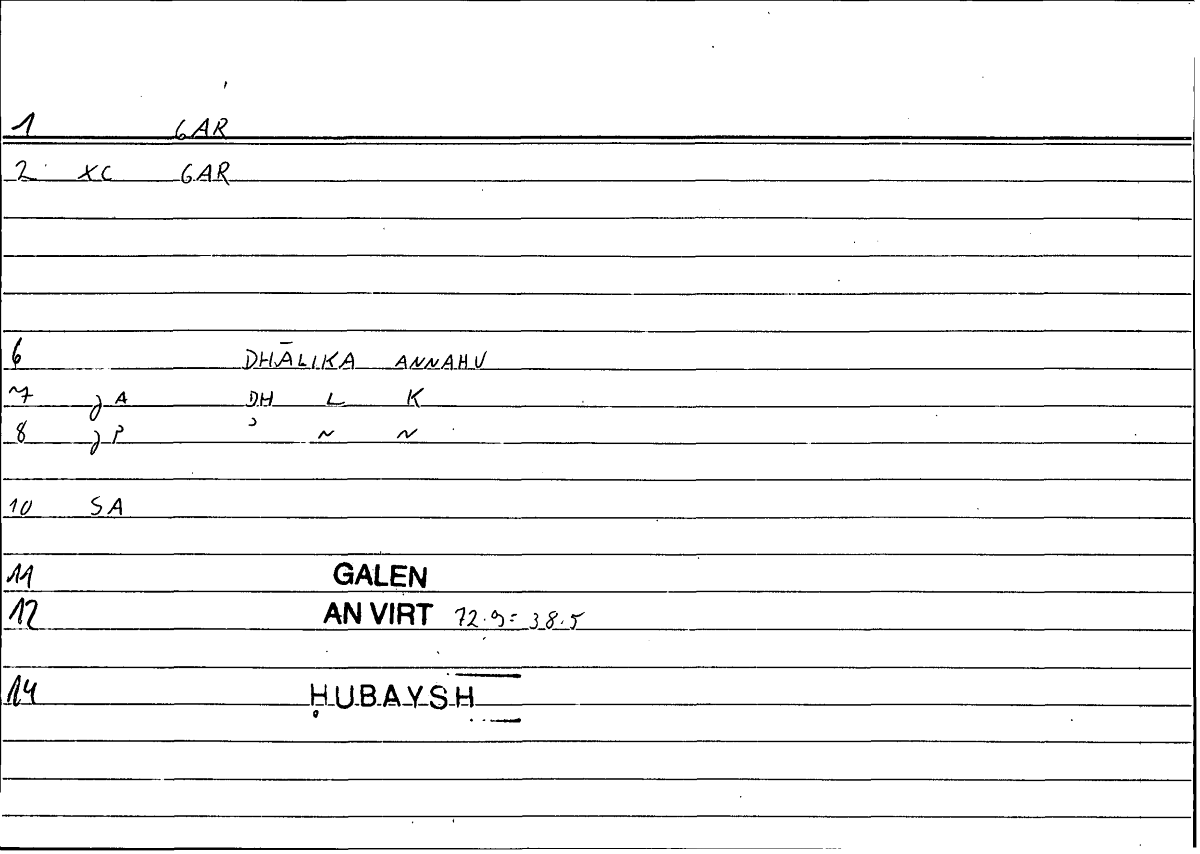 1 GAR
2 XC GAR
6 DHĀLIKA ANNAHU
7 A DH L K
8 P ~ ~
10 SA
11 GALEN
12 AN VIRT 72.9=38.5
14 ḤUBAYSH